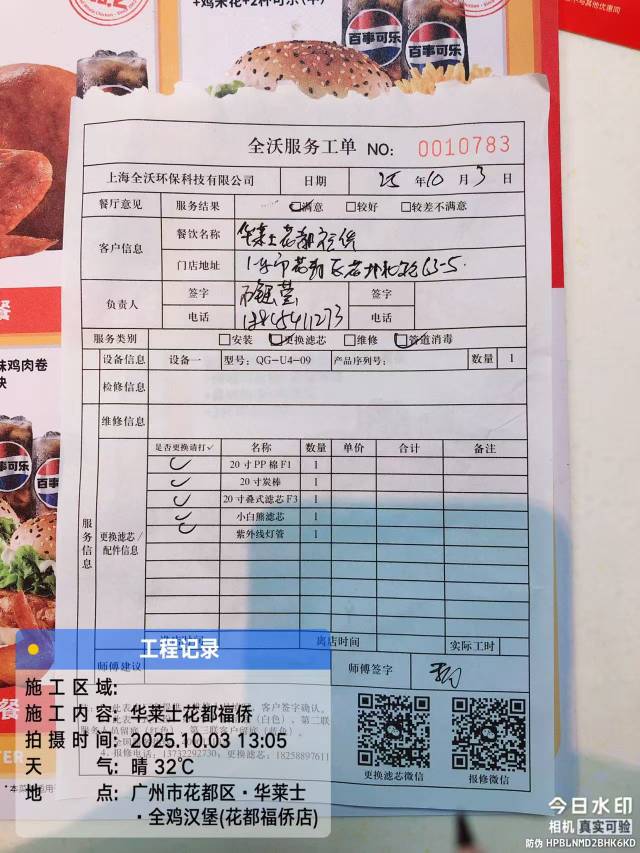 +鸡米花+2杯可乐(中)
百事可乐
百事可乐
全沃服务工单 NO: 0010783
上海全沃环保科技有限公司 日期 25 年 10 月 3 日
餐厅意见 服务结果 ☑满意 □较好 □较差不满意
客户信息 餐饮名称 华莱士花都福侨
门店地址 63-5
负责人 签字 签字
电话 电话
服务类别 □安装 ☑更换滤芯 □维修 ☑管道消毒
设备信息 设备一 型号: QG-U4-09 产品序列号: 数量 1
检修信息
维修信息
服务信息
更换滤芯/配件信息
是否更换请打✓ 名称 数量 单价 合计 备注
✓ 20寸PP棉F1 1
✓ 20寸炭棒 1
✓ 20寸叠式滤芯F3 1
✓ 小白熊滤芯 1
✓ 紫外线灯管 1
离店时间 实际工时
师傅建议 师傅签字
客户签字确认。
(白色)、第二联
4.报修电话: 13732292730, 更换滤芯: 1825889761
更换滤芯微信 报修微信
味鸡肉卷
百事可乐
百事可乐
餐
餐
工程记录
施工区域:
施工内容: 华莱士花都福侨
拍摄时间: 2025.10.03 13:05
天气: 晴 32℃
地点: 广州市花都区·华莱士
·全鸡汉堡(花都福侨店)
今日水印
相机 真实可验
防伪 HPBLNMD2BHK6KD